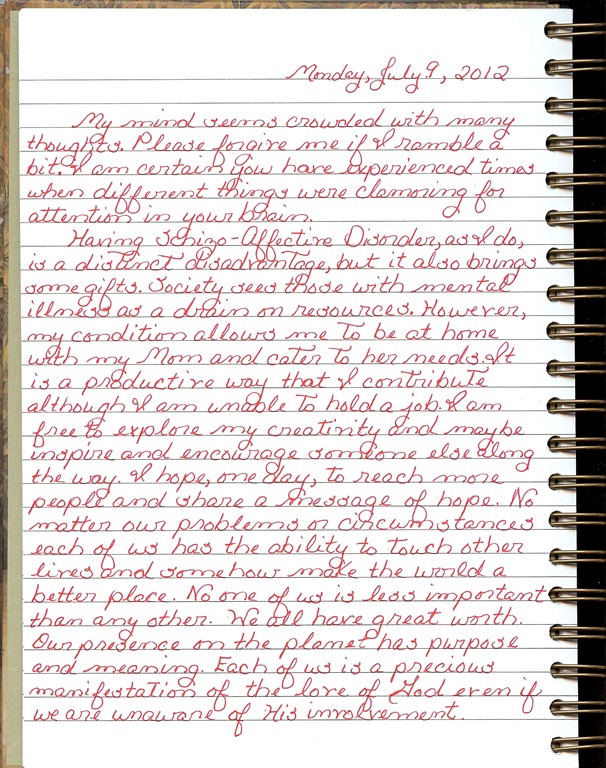 Monday, July 9, 2012
My mind seems crowded with many
thoughts. Please forgive me if I ramble a
bit. I am certain you have experienced times
when different things were clamoring for
attention in your brain.
Having Schizo-Affective Disorder, as I do,
is a distinct disadvantage, but it also brings
some gifts. Society sees those with mental
illness as a drain on resources. However,
my condition allows me to be at home
with my Mom and cater to her needs. It
is a productive way that I contribute
although I am unable to hold a job. I am
free to explore my creativity and maybe
inspire and encourage someone else along
the way. I hope, one day, to reach more
people and share a message of hope. No
matter our problems or circumstances
each of us has the ability to touch other
lives and somehow make the world a
better place. No one of us is less important
than any other. We all have great worth.
Our presence on the planet has purpose
and meaning. Each of us is a precious
manifestation of the love of God even if
we are unaware of His involvement.